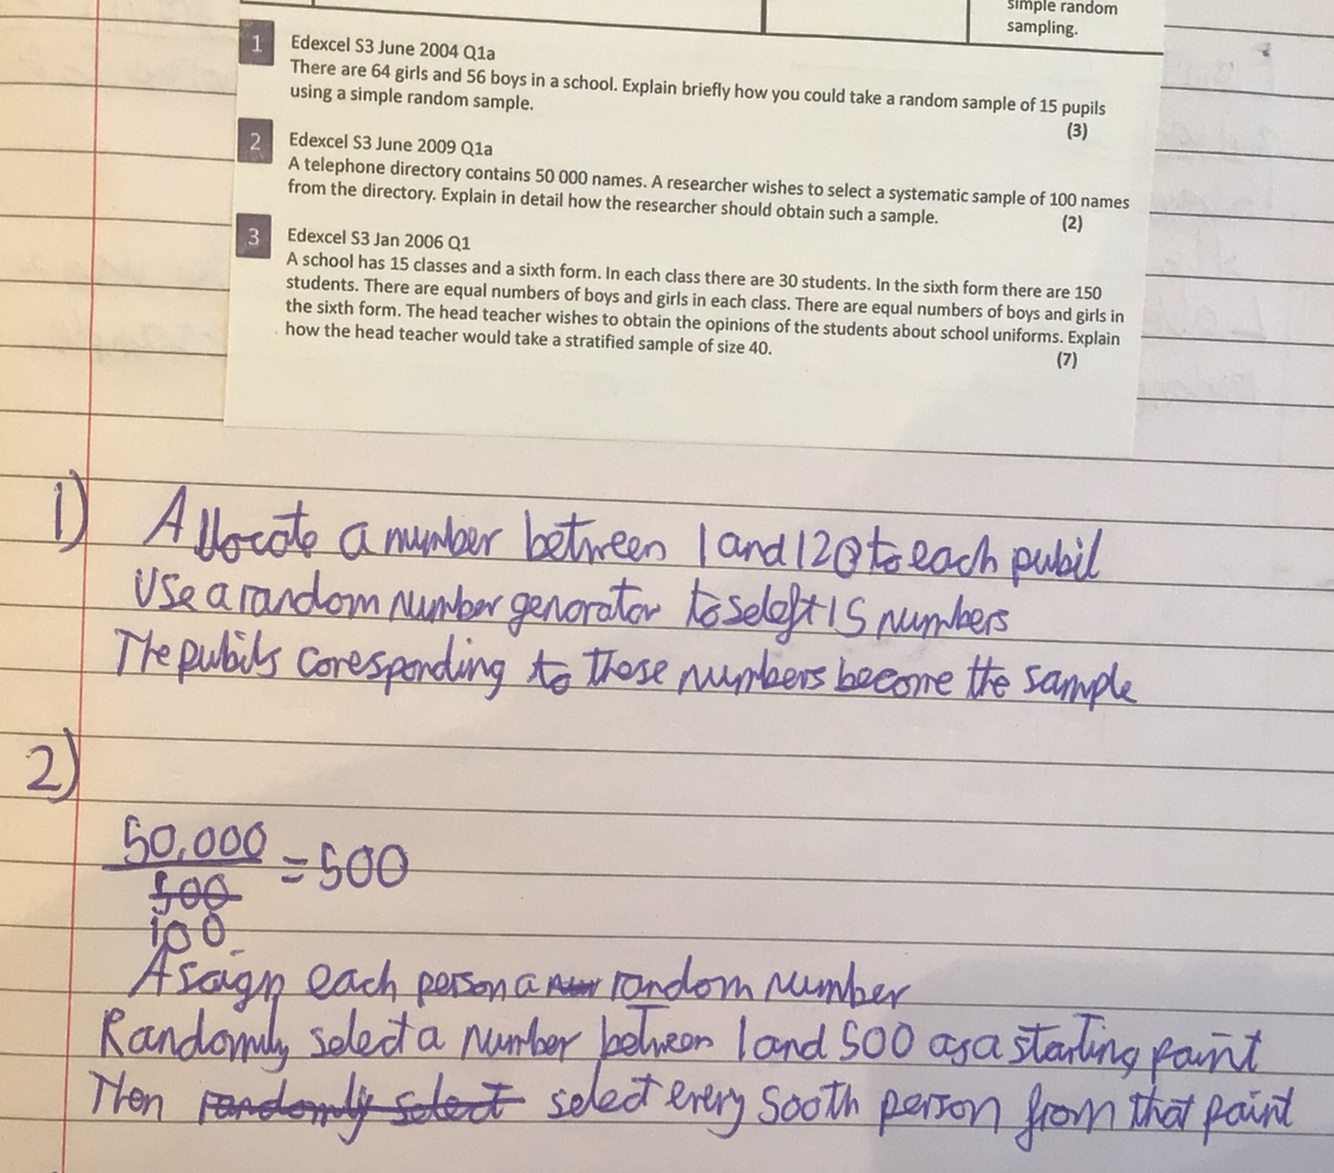 simple random
sampling.
1 Edexcel S3 June 2004 Q1a
There are 64 girls and 56 boys in a school. Explain briefly how you could take a random sample of 15 pupils
using a simple random sample.
(3)
2 Edexcel S3 June 2009 Q1a
A telephone directory contains 50 000 names. A researcher wishes to select a systematic sample of 100 names
from the directory. Explain in detail how the researcher should obtain such a sample.
(2)
3 Edexcel S3 Jan 2006 Q1
A school has 15 classes and a sixth form. In each class there are 30 students. In the sixth form there are 150
students. There are equal numbers of boys and girls in each class. There are equal numbers of boys and girls in
the sixth form. The head teacher wishes to obtain the opinions of the students about school uniforms. Explain
how the head teacher would take a stratified sample of size 40.
(7)
1) Allocate a number between 1 and 120 to each pubil
Use a random number genorator to select 15 numbers
The pubils coresponding to those numbers become the sample
2)
50,000
= 500
500
100
Assign each person a random number
Randomly select a number between 1 and 500 as a starting point
Then randomly select select every 500th person from that point